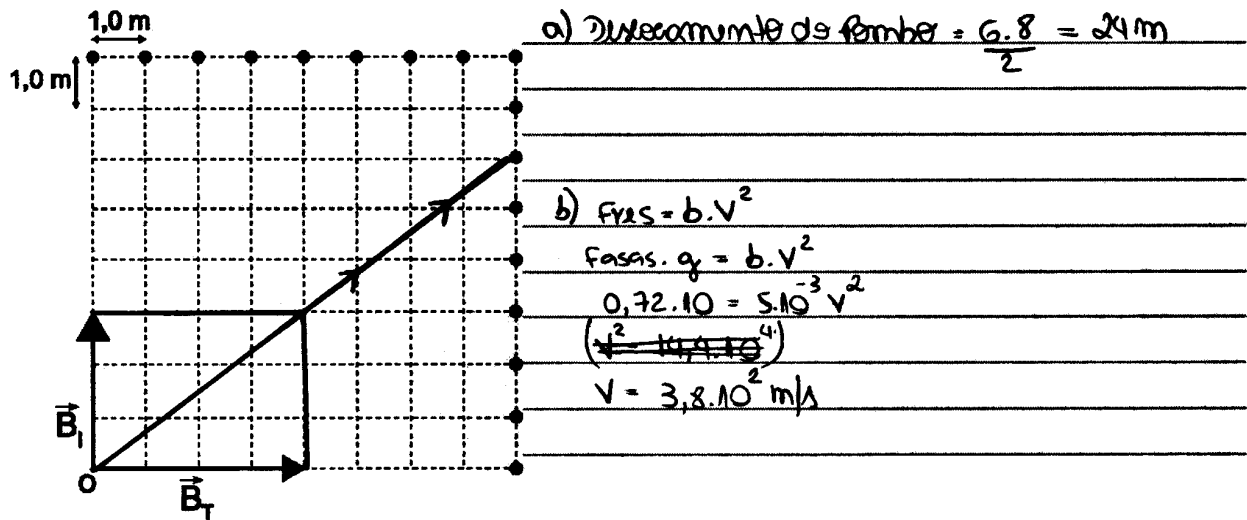 1,0 m
1,0 m
B⃗ı
O
B⃗T
a) Deslocamento do Pombo = 6.8/2 = 24 m
b) Fres = b.V²
Fasas.g = b.V²
0,72.10 = 5.10⁻³ V²
V = 3,8.10² m/s